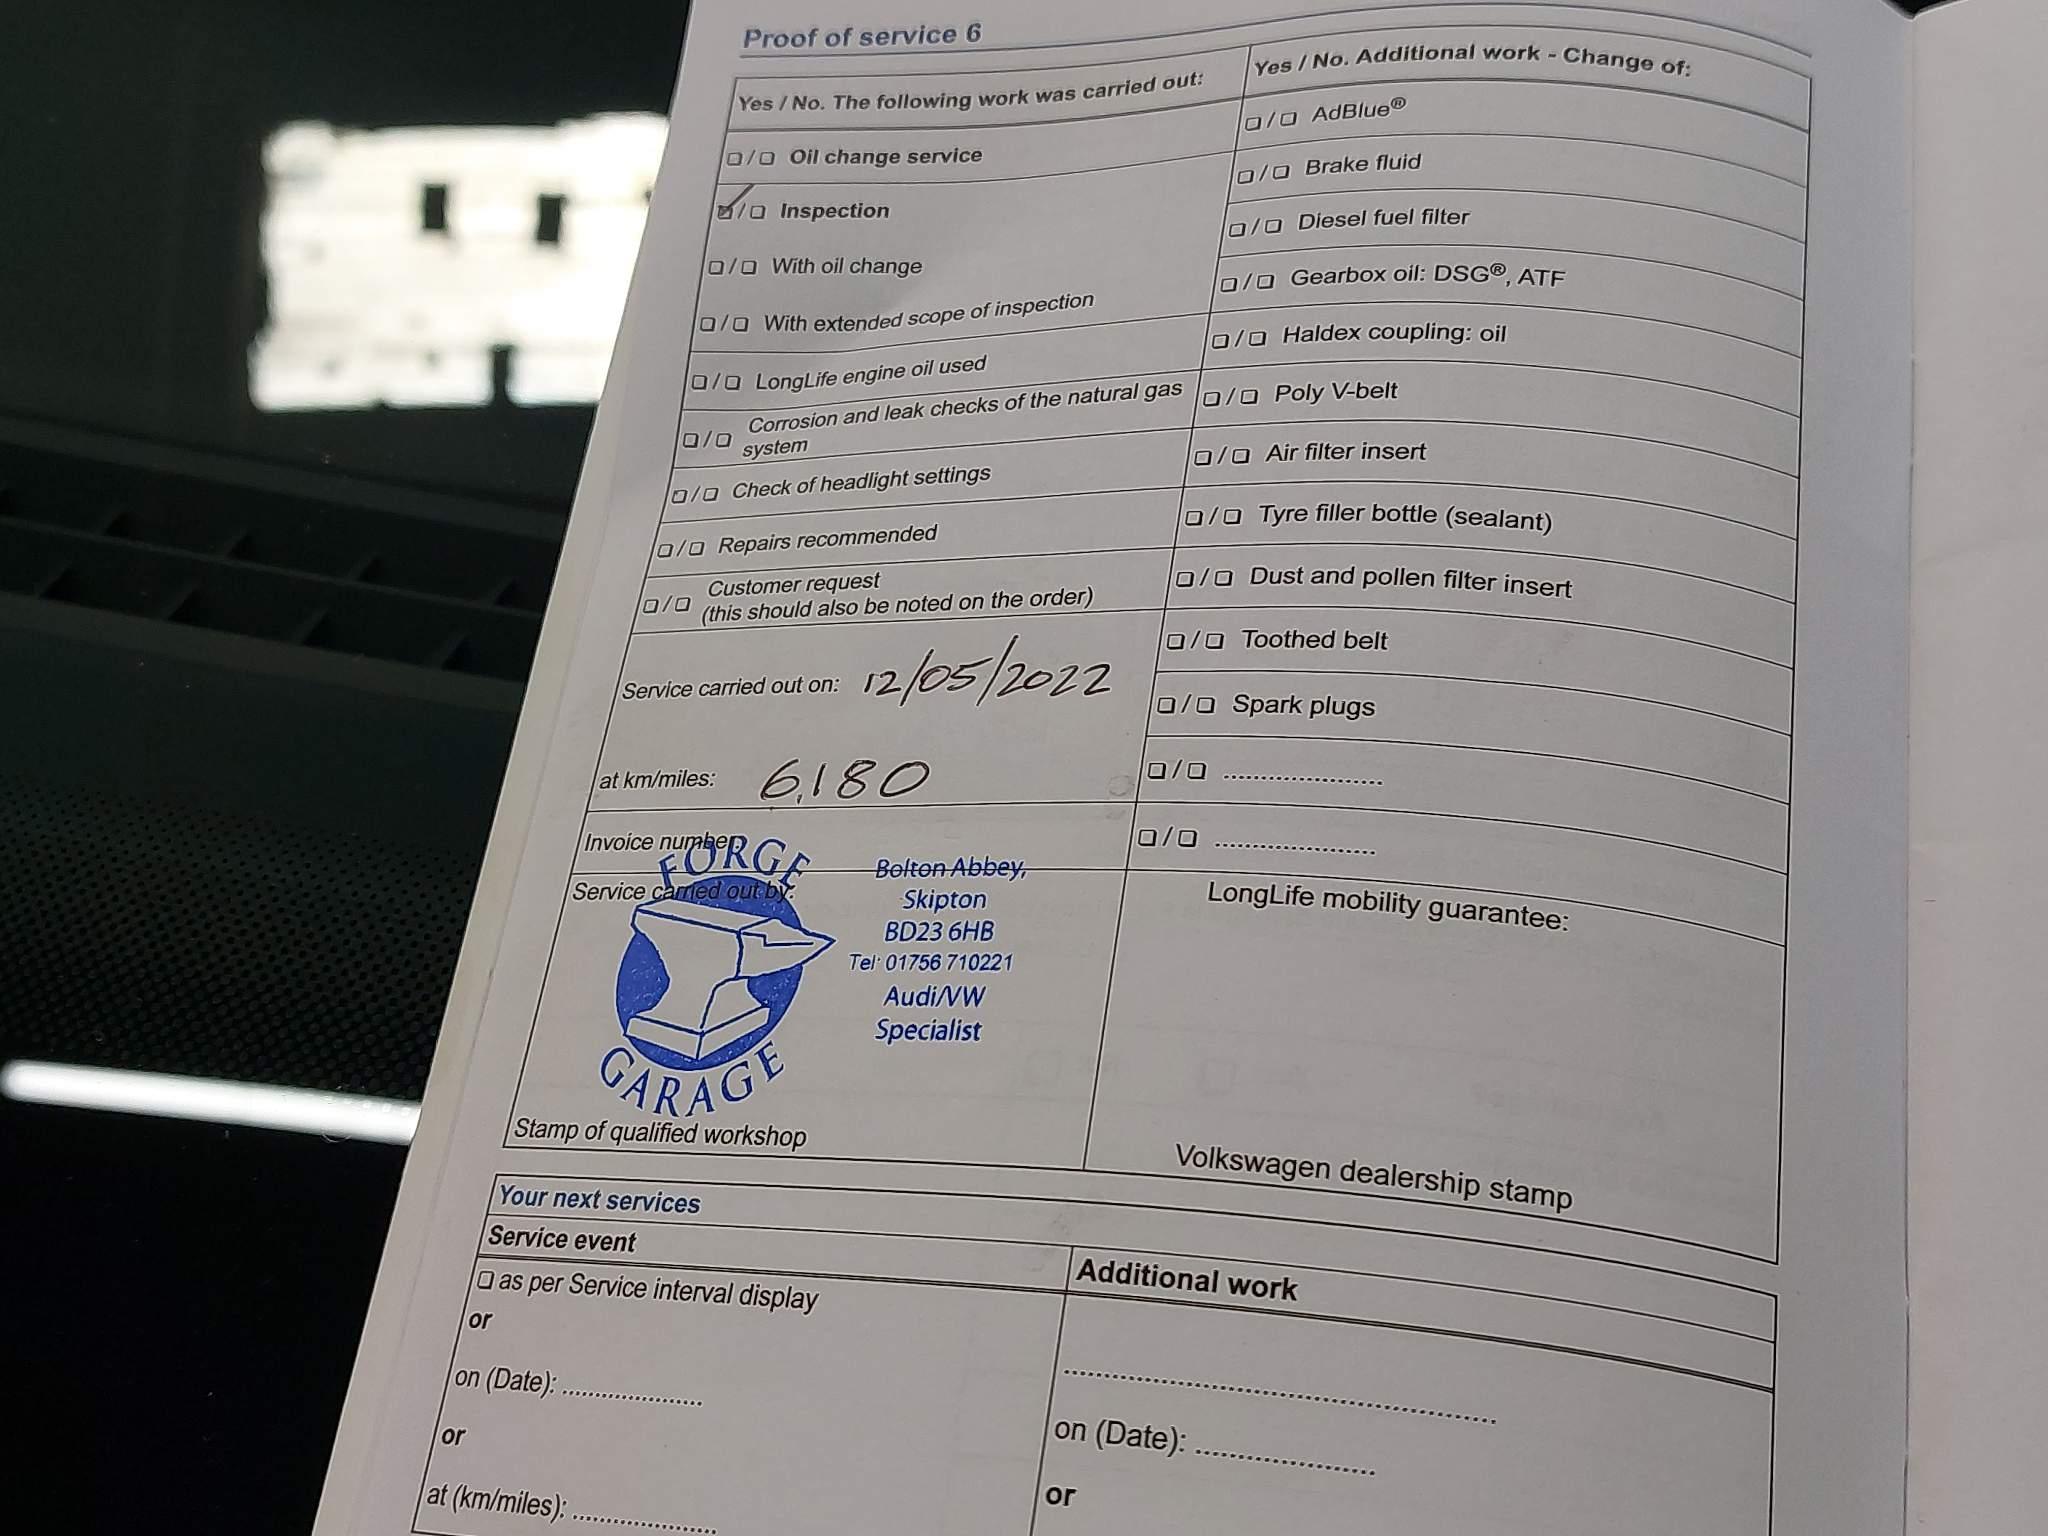 Proof of service 6
Yes / No. The following work was carried out:
☐ / ☐ Oil change service
☑ / ☐ Inspection
☐ / ☐ With oil change
☐ / ☐ With extended scope of inspection
☐ / ☐ LongLife engine oil used
☐ / ☐ Corrosion and leak checks of the natural gas
system
☐ / ☐ Check of headlight settings
☐ / ☐ Repairs recommended
☐ / ☐ Customer request
(this should also be noted on the order)
Service carried out on: 12/05/2022
at km/miles: 6,180
Invoice number:
Service carried out by:
FORGE
GARAGE
Bolton Abbey,
Skipton
BD23 6HB
Tel: 01756 710221
Audi/VW
Specialist
Stamp of qualified workshop
Yes / No. Additional work - Change of:
☐ / ☐ AdBlue®
☐ / ☐ Brake fluid
☐ / ☐ Diesel fuel filter
☐ / ☐ Gearbox oil: DSG®, ATF
☐ / ☐ Haldex coupling: oil
☐ / ☐ Poly V-belt
☐ / ☐ Air filter insert
☐ / ☐ Tyre filler bottle (sealant)
☐ / ☐ Dust and pollen filter insert
☐ / ☐ Toothed belt
☐ / ☐ Spark plugs
☐ / ☐ ......................
☐ / ☐ ......................
LongLife mobility guarantee:
Volkswagen dealership stamp
Your next services
Service event
☐ as per Service interval display
or
on (Date): .....................
or
at (km/miles): .....................
Additional work
..................................................
on (Date): .....................
or